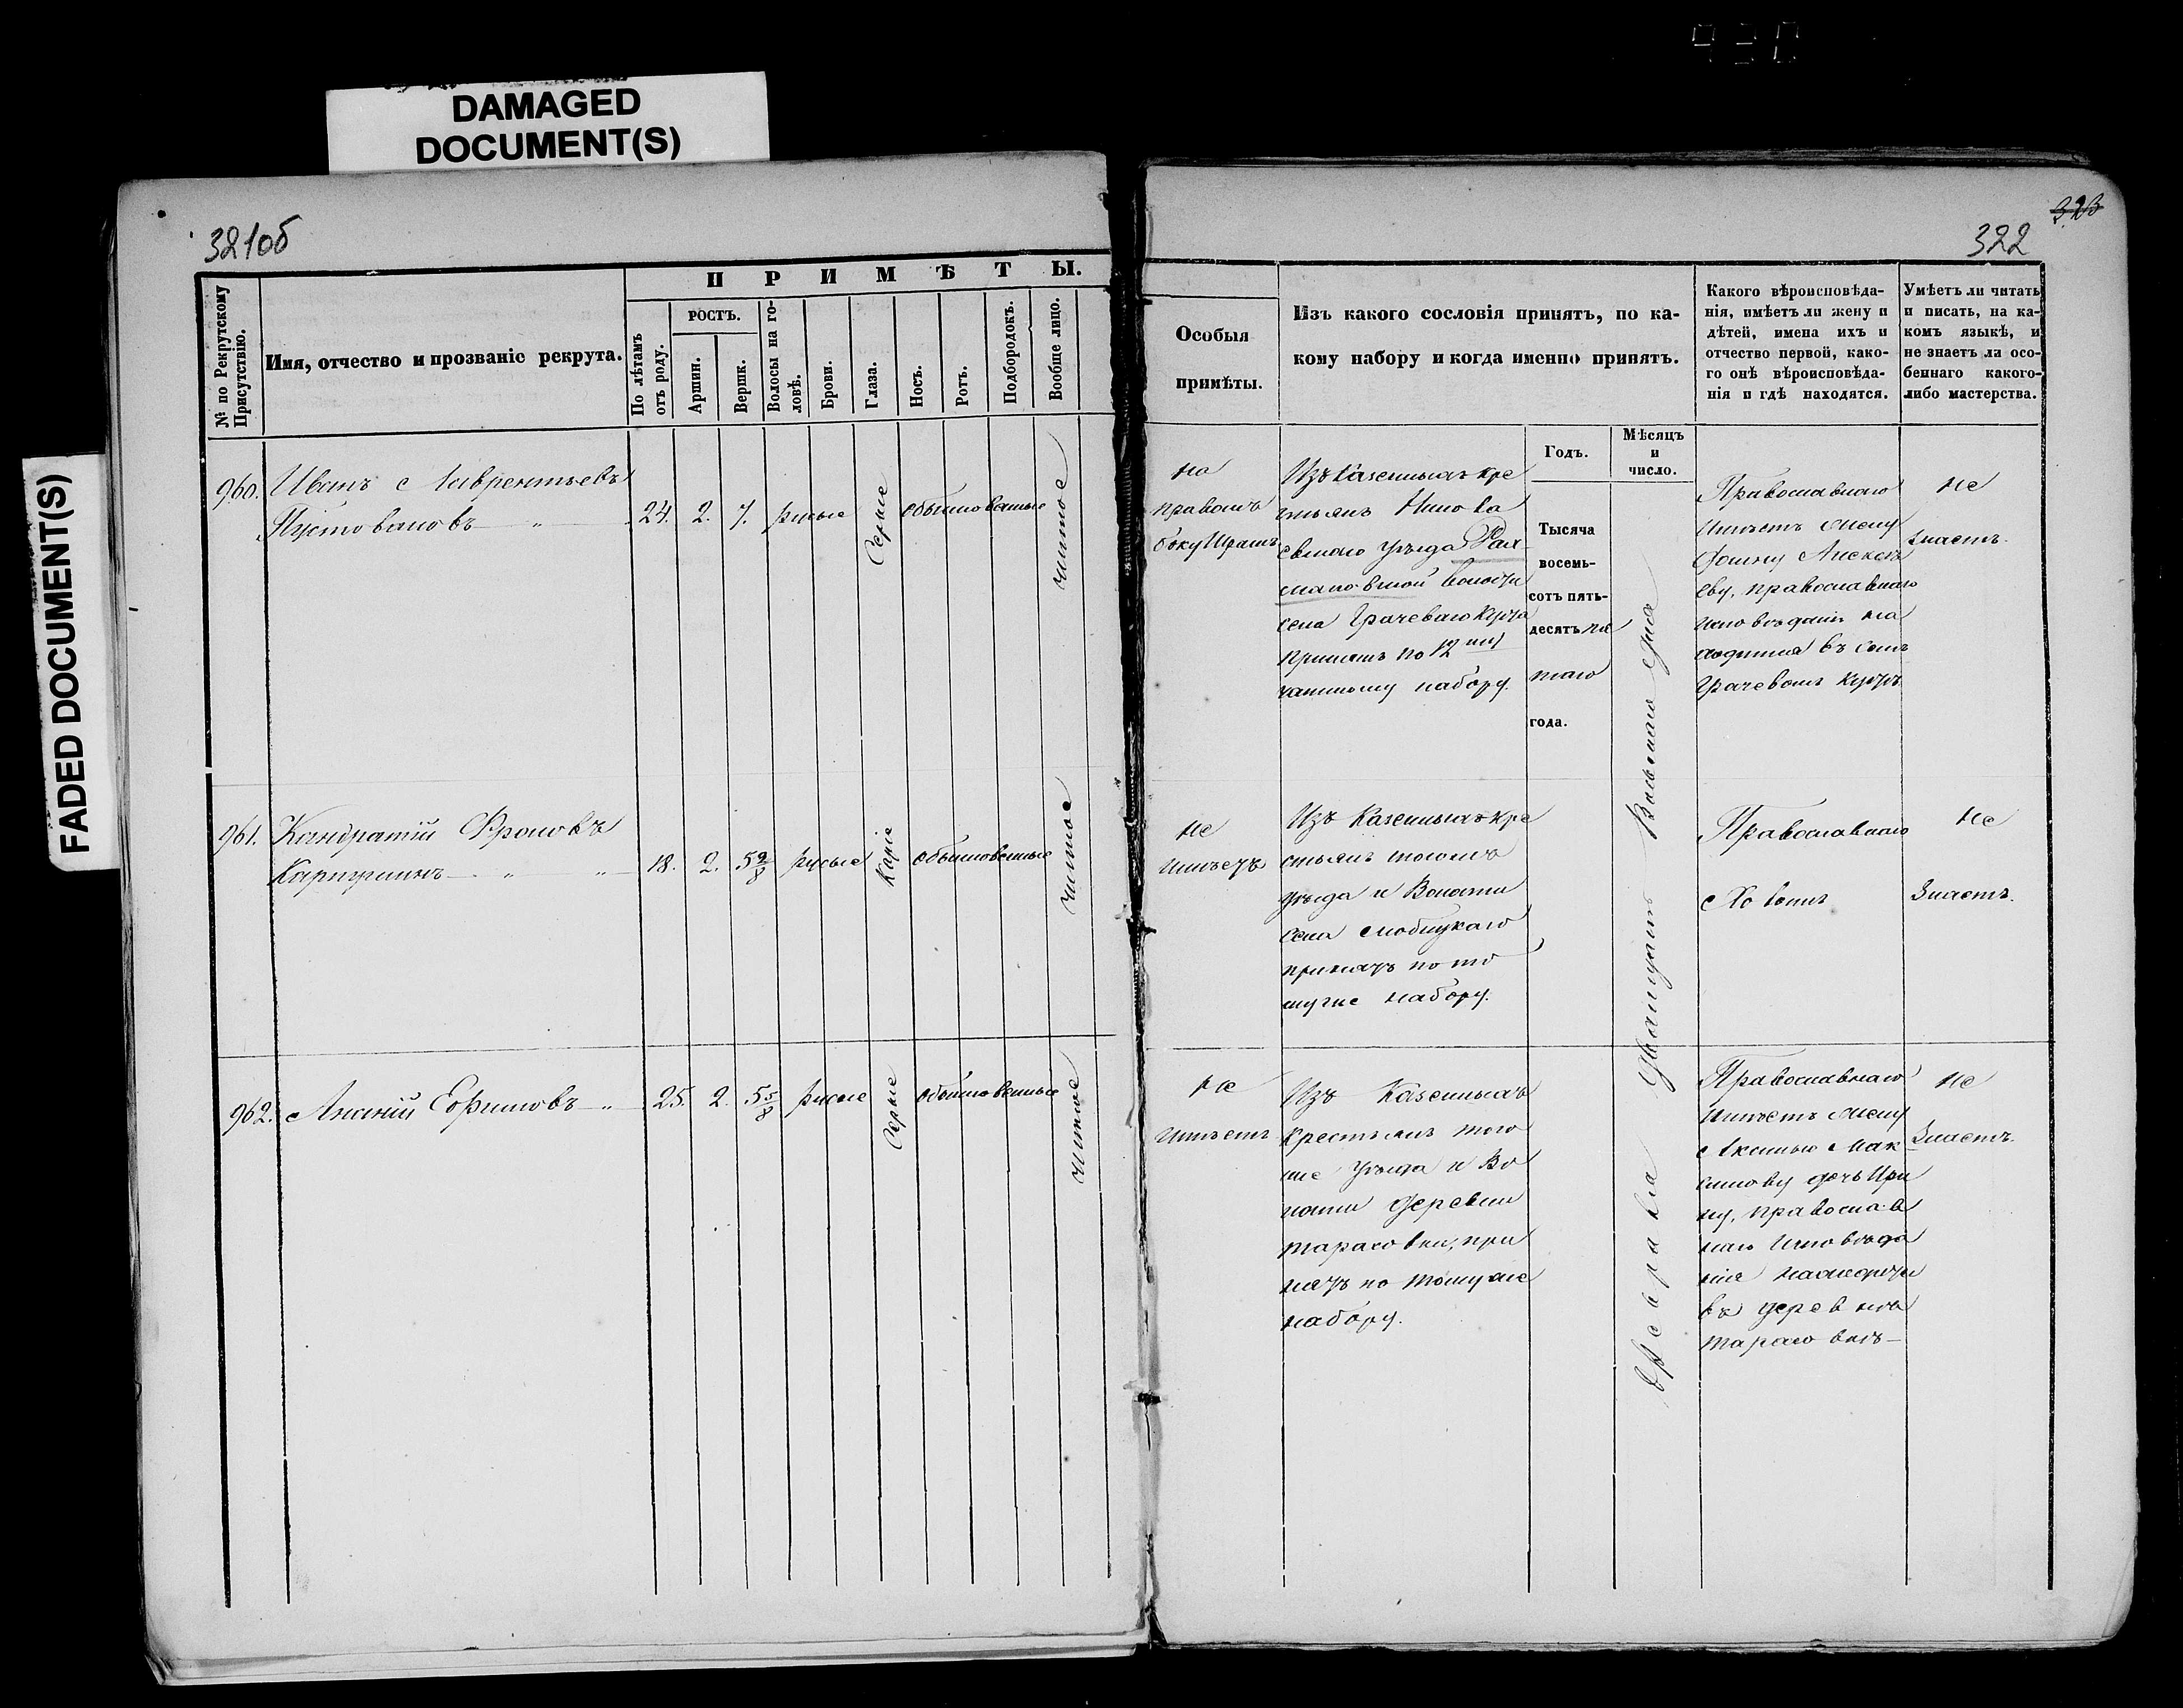 DAMAGED
DOCUMENT(S)
FADED DOCUMENT(S)
321об
323
322
№ по Рекрутскому
Присутствію.
Имя, отчество и прозваніе рекрута.
ПРИМѢТЫ.
По лѣтамъ
отъ роду.
РОСТЪ.
Аршин.
Вершк.
Волосы на го-
ловѣ.
Брови.
Глаза.
Носъ.
Ротъ.
Подбородокъ.
Вообще лицо.
Особыя
примѣты.
Изъ какого сословія принятъ, по ка-
кому набору и когда именно принятъ.
Годъ.
Мѣсяцъ
и
число.
Какого вѣроисповѣда-
нія, имѣетъ ли жену и
дѣтей, имена ихъ и
отчество первой, како-
го онѣ вѣроисповѣда-
нія и гдѣ находятся.
Умѣетъ ли читать
и писать, на ка-
комъ языкѣ, и
не знаетъ ли осо-
беннаго какого-
либо мастерства.
960. Иванъ Лаврентьевъ
Пустоваловъ 24. 2. 7. русые Серые обыкновенные чистое
на
правомъ
боку Шрамъ
Изъ Казенныхъ кре
стьянъ
уѣзда Рах
мановской волости
села Грачеваго Куста
Принятъ по 12му
частному набору.
Тысяча
восемь-
сотъ пять-
десятъ пя
таго
года.
Февраля двадцать Восьмаго дня
Православнаго
Имѣетъ жену
Фоину Алексѣ
еву, православнаго
исповѣданія на
ходится въ селѣ
Грачевомъ Кустѣ
не
знаетъ.
961. Кандратій Фроловъ
Карпушинъ 18. 2. 5 2/8 русые Каріе обыкновенные чистое
не
имѣетъ
Изъ Казенныхъ кре
стьянъ тогожъ
уѣзда и Волости
села Слободскаго
принятъ по то
муже набору.
Православнаго
Холостъ
не
знаетъ.
962. Ананій Ефимовъ 25. 2. 5 5/8 русые Серые обыкновенные чистое
не
имѣетъ
Изъ Казенныхъ
Крестьянъ того
же уѣзда и Во
лости деревни
тарасовки, при
нятъ по томуже
набору.
Православнаго
Имѣетъ жену
Аксинью Мак
симову дочь Ири
ну, православ
наго Исповѣда
нія находятся
въ деревнѣ
тарасовкѣ
не
знаетъ.